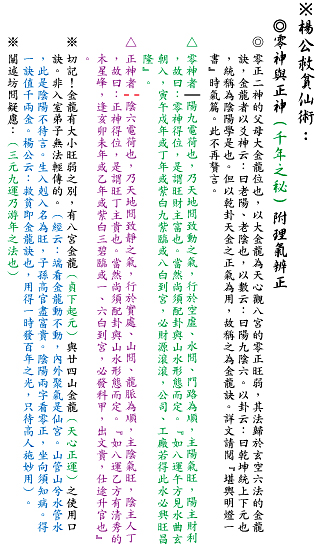 ※ 楊公救貧仙術：
◎零神與正神(千年之秘)附理氣辨正
◎零正二神的父母大金龍位也，以大金龍為天心觀八宮的零正旺弱，其法歸於玄空六法的金龍
訣，金龍者以爻神云：曰老陽、老陰也，以數云：曰陽九陰六。以卦云：曰乾坤統上下元也
，統稱為陰陽學是也。但以乾卦天金之正氣為用，故稱之為金龍訣。詳文請閱『堪輿明燈一
書』時氣篇。此不再贅言。
△零神者——陽九電荷也，乃天地間致動之氣，行於空虛、水間、門路為順，主陽氣旺，陽主財利
，故曰：零神得位，是謂旺財主富也。當然尚須配卦與山水形態而定。『如八運午方見水曲玄
朝入，寅午戌年或丁年或紫白九紫臨或八白到宮，必財源滾滾，公司、工廠若得此水必興旺昌
隆』。
△正神者--陰六電荷也，乃天地間致靜之氣，行於實處、山間、龍脈為順，主陰氣旺，陰主人丁
，故曰：正神得位，是謂旺丁主貴也。當然尚須配卦與山水形態而定。『如八運乙方有清秀的
木星峰，逢亥卯未年或乙年或紫白三碧臨或一、六白到宮，必發科甲，出文貴，仕途升官也』
※切記！金龍有大小旺弱之分別，有八宮金龍(貞下起元)與廿四山金龍(天心正運)之使用口
訣。非入室弟子無法輕傳的。(經云：端看金龍動不動，內外聚氣是仙宮。山管山兮水管水
，此是陰陽不待言。生入尅入名為旺，子孫高官盡富貴。陰陽兩字看零正，坐向須知病。得
一訣值千兩金。楊公云：救貧即金龍訣也，用得一時發百年之光，只待高人施妙用)。
※闢謠坊間疑慮：(三元九運乃游年之法也)